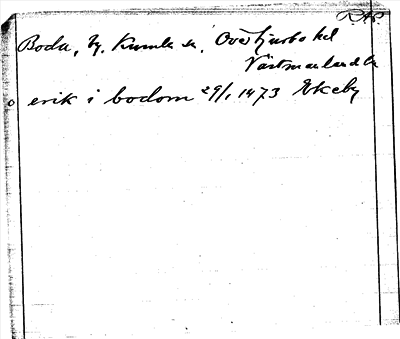 RAP.
Boda, by. Kumla sn, Övertjurbo hd
Västmanlands län
erik i bodom 29/1 1473 Ekeby